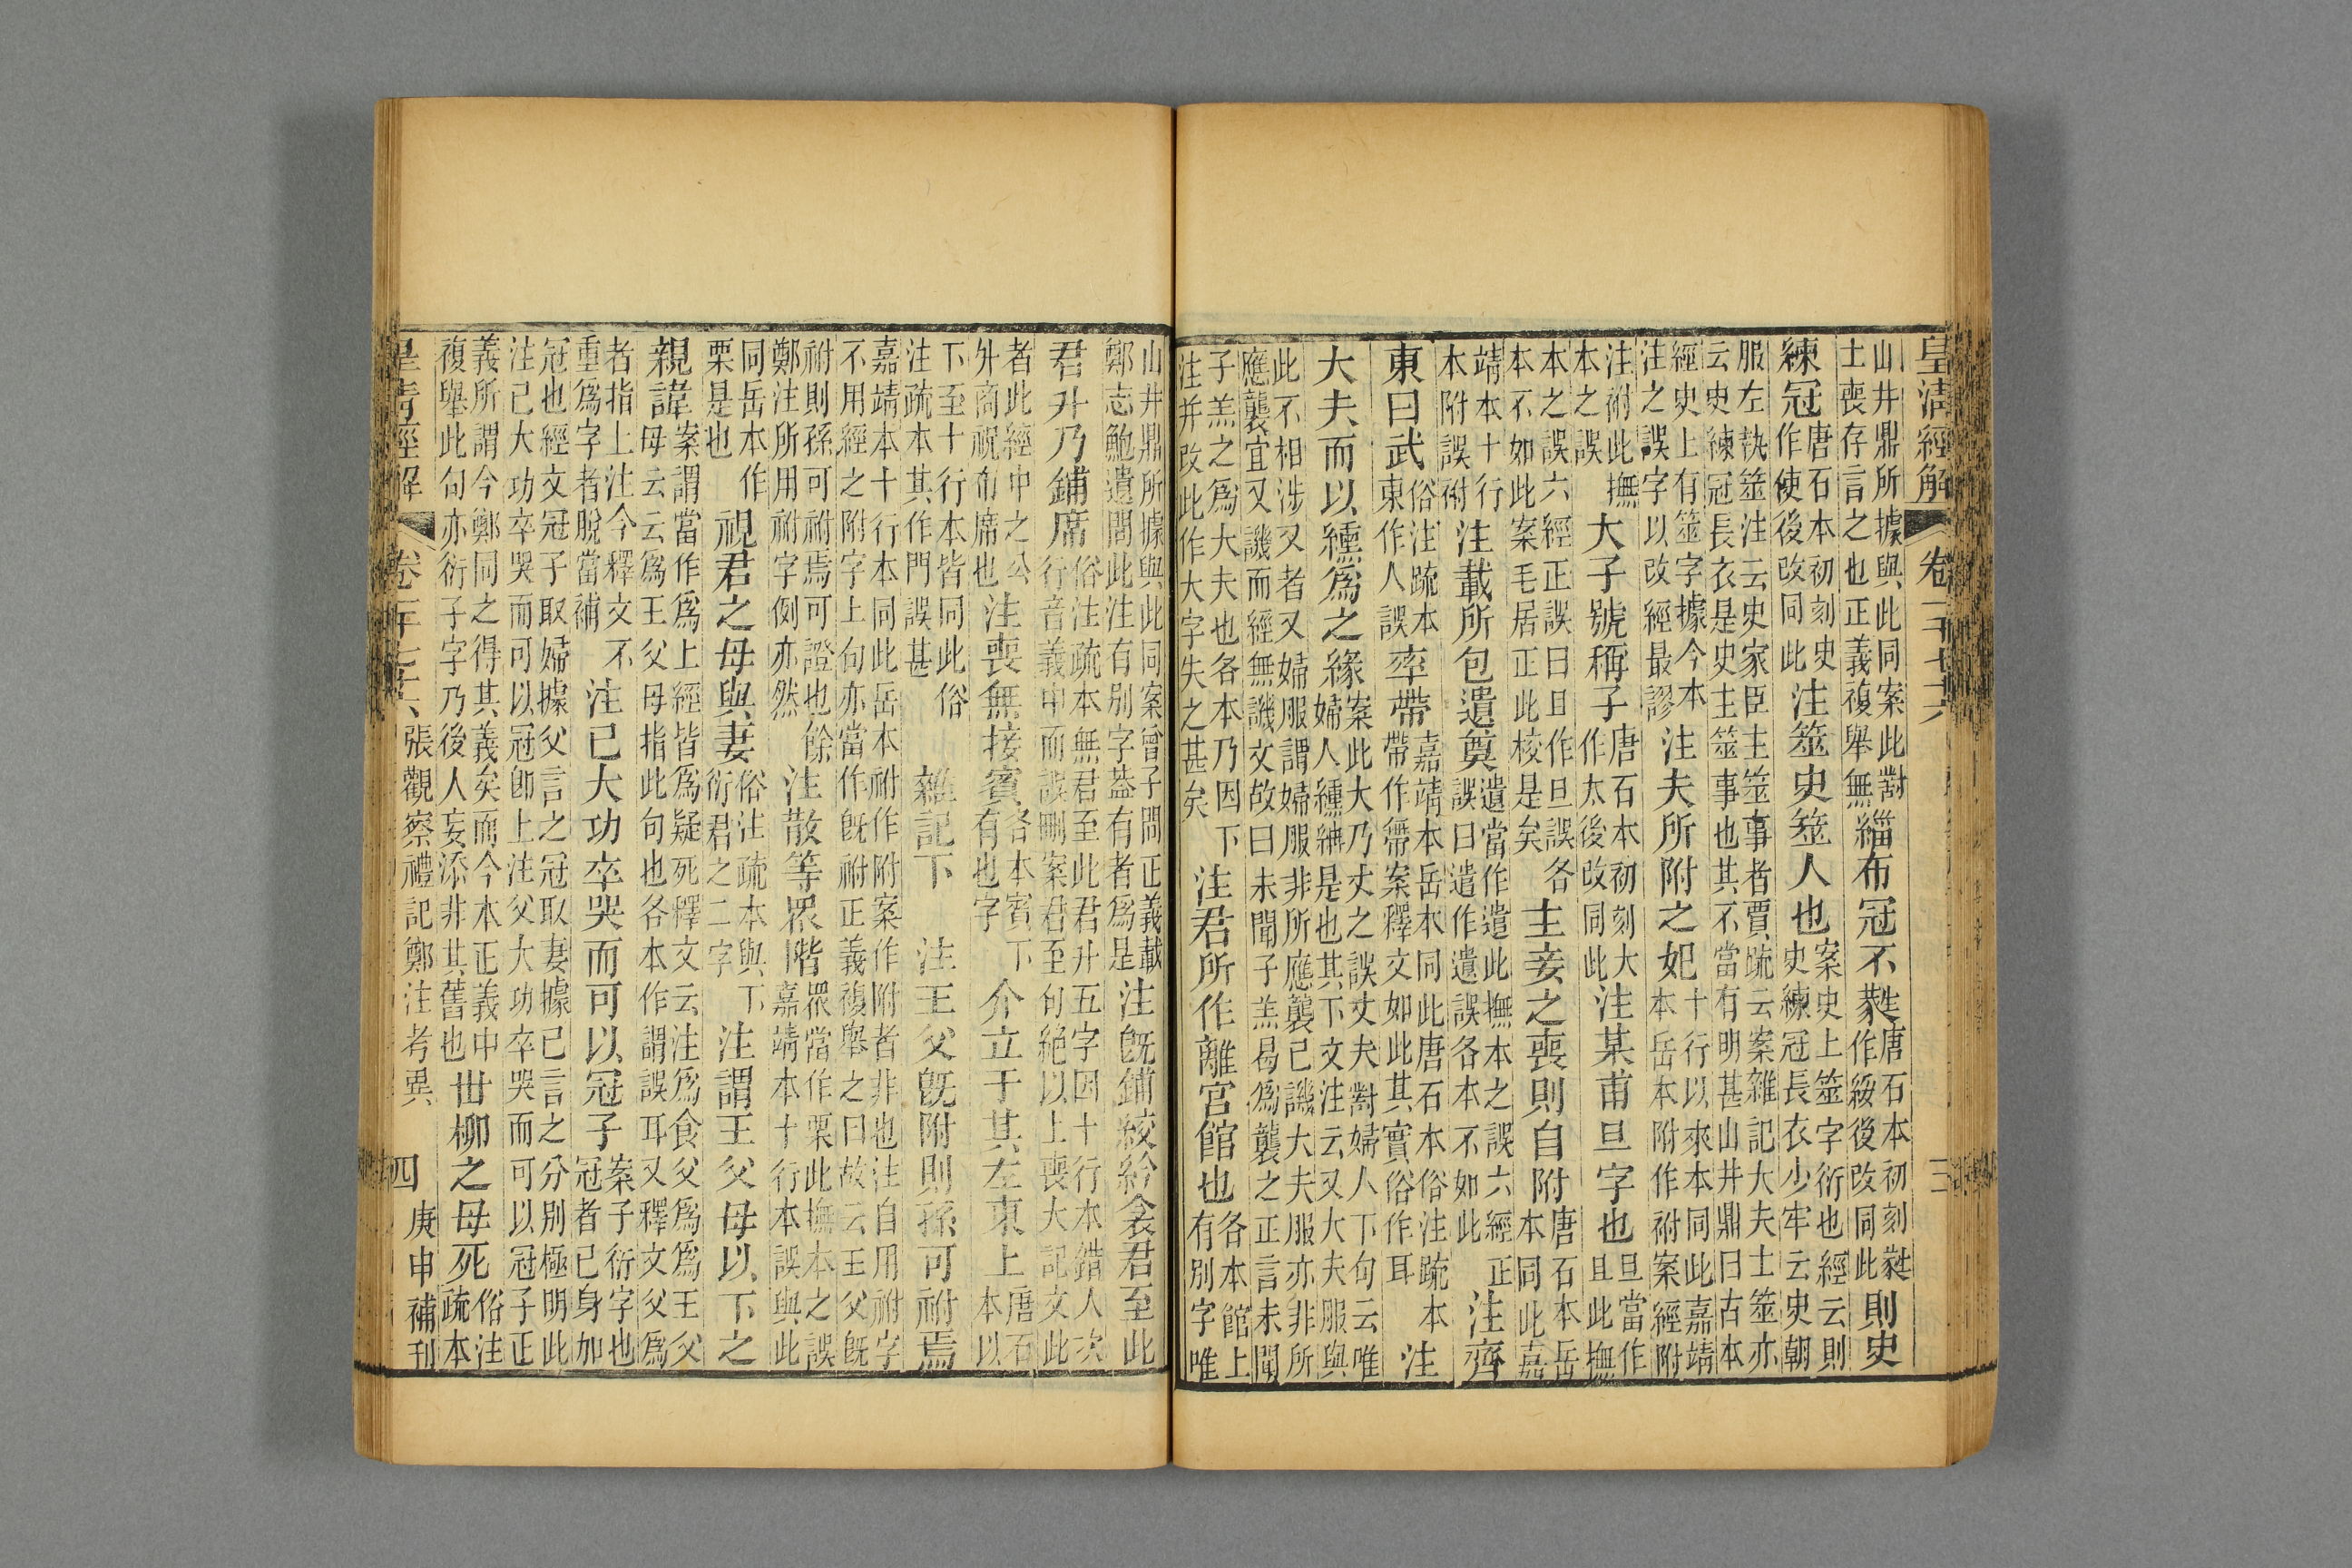 皇清經解 卷一千七十六 三
山井鼎所據與此同案此對
士喪存言之也正義複舉無 緇布冠不蕤 唐石本初刻蕤
作緌後改同此 則史
練冠 唐石本初刻史
作使後改同此 注筮史筮人也 案史上筮字衍也經云則
史練冠長衣少牢云史朝
服左執筮注云史家臣主筮事者賈疏云案雜記大夫士筮亦
云史練冠長衣是史主筮事也其不當有明甚山井鼎曰古本
經史上有筮字據今本
注之誤字以改經最謬 注夫所附之妃 十行以來本同此嘉靖
本岳本附作祔案經附
注祔此撫
本之誤 大子號稱子 唐石本初刻大
作太後改同此 注某甫旦字也 旦當作
且此撫
本之誤六經正誤曰且作旦誤各
本不如此案毛居正此校是矣 主妾之喪則自附 唐石本岳
本同此嘉
靖本十行
本附誤祔 注載所包遣奠 遣當作遣此撫本之誤六經正
誤曰遣作遺誤各本不如此 注齊
東曰武 俗注疏本
東作人誤 率帶 嘉靖本岳本同此唐石本俗注疏本
帶作㡜帶案釋文如此其實俗作耳 注
大夫而以纁爲之緣 案此大乃丈之誤丈夫對婦人下句云唯
婦人纁袡是也其下文注云又大夫服與
此不相涉又者又婦服謂婦服非所應襲已譏大夫服亦非所
應襲宜又譏而經無譏文故曰未聞子羔曷爲襲之正言未聞
子羔之爲大夫也各本乃因下
注并改此作大字失之甚矣 注君所作離宮館也 各本館上
有別字唯
山井鼎所據與此同案曾子問正義載
鄭志鮑遺問此注有別字葢有者爲是 注旣鋪絞紟衾君至此
君升乃鋪席 俗注疏本無君至此君升五字因十行本錯入次
行音義中而誤刪案君至句絶以上喪大記文此
者此經中之公
外商祝布席也 注喪無接賓 各本賓下
有也字 介立于其左東上 唐石
本以
下至十行本皆同此俗
注疏本其作門誤甚 雜記下 注王父旣附則孫可祔焉
嘉靖本十行本同此岳本祔作附案作附者非也注自用祔字
不用經之附字上句亦當作旣祔正義複舉之曰故云王父旣
祔則孫可祔焉可證也餘
鄭注所用祔字例亦然 注散等眾階 眾當作栗此撫本之誤
嘉靖本十行本誤與此
同岳本作
栗是也 視君之母與妻 俗注疏本與下
衍君之二字 注謂王父母以下之
親諱 案謂當作爲上經皆爲疑死釋文云注爲食父爲爲王父
母云云爲王父母指此句也各本作謂誤耳又釋文父爲
者指上注今釋文不
重爲字者脫當補 注已大功卒哭而可以冠子 案子衍字也
冠者已身加
冠也經文冠子取婦據父言之冠取妻據己言之分別極明此
注已大功卒哭而可以冠卽上注父大功卒哭而可以冠子正
義所謂今鄭同之得其義矣而今本正義中
複舉此句亦衍子字乃後人妄添非其舊也 世柳之母死 俗注
疏本
皇清經解 卷一千七十六 張觀察禮記鄭注考異 四 庚申補刊